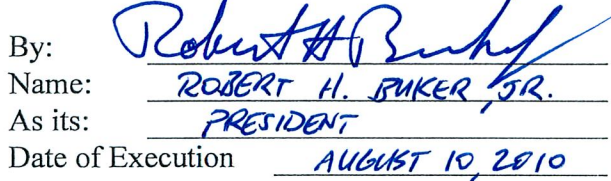 By: Robert H Buker Jr
Name: ROBERT H. BUKER, JR.
As its: PRESIDENT
Date of Execution AUGUST 10, 2010